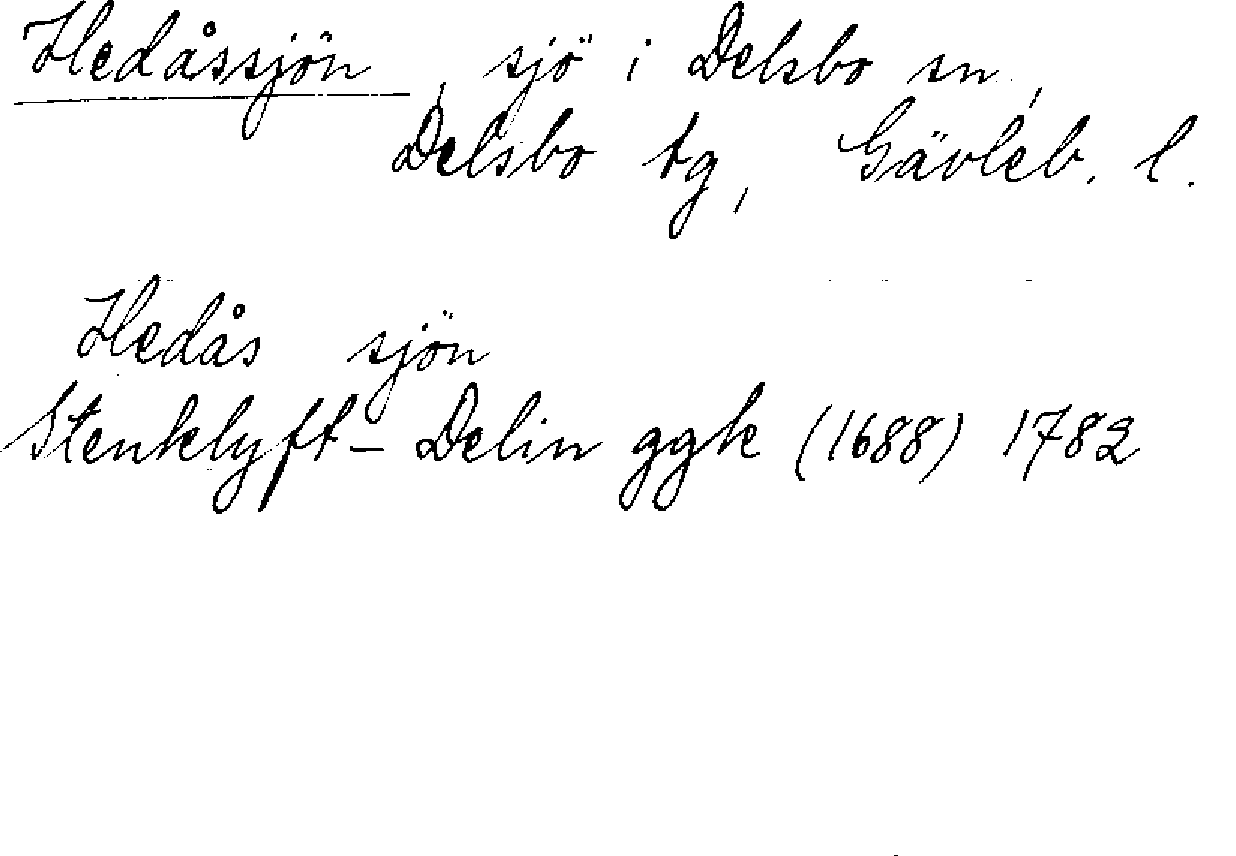 Hedåssjön, sjö i Delsbo sn,
Delsbo tg, Gävleb. l.
Hedås sjön
Stenklyft- Delin ggk (1688) 1782